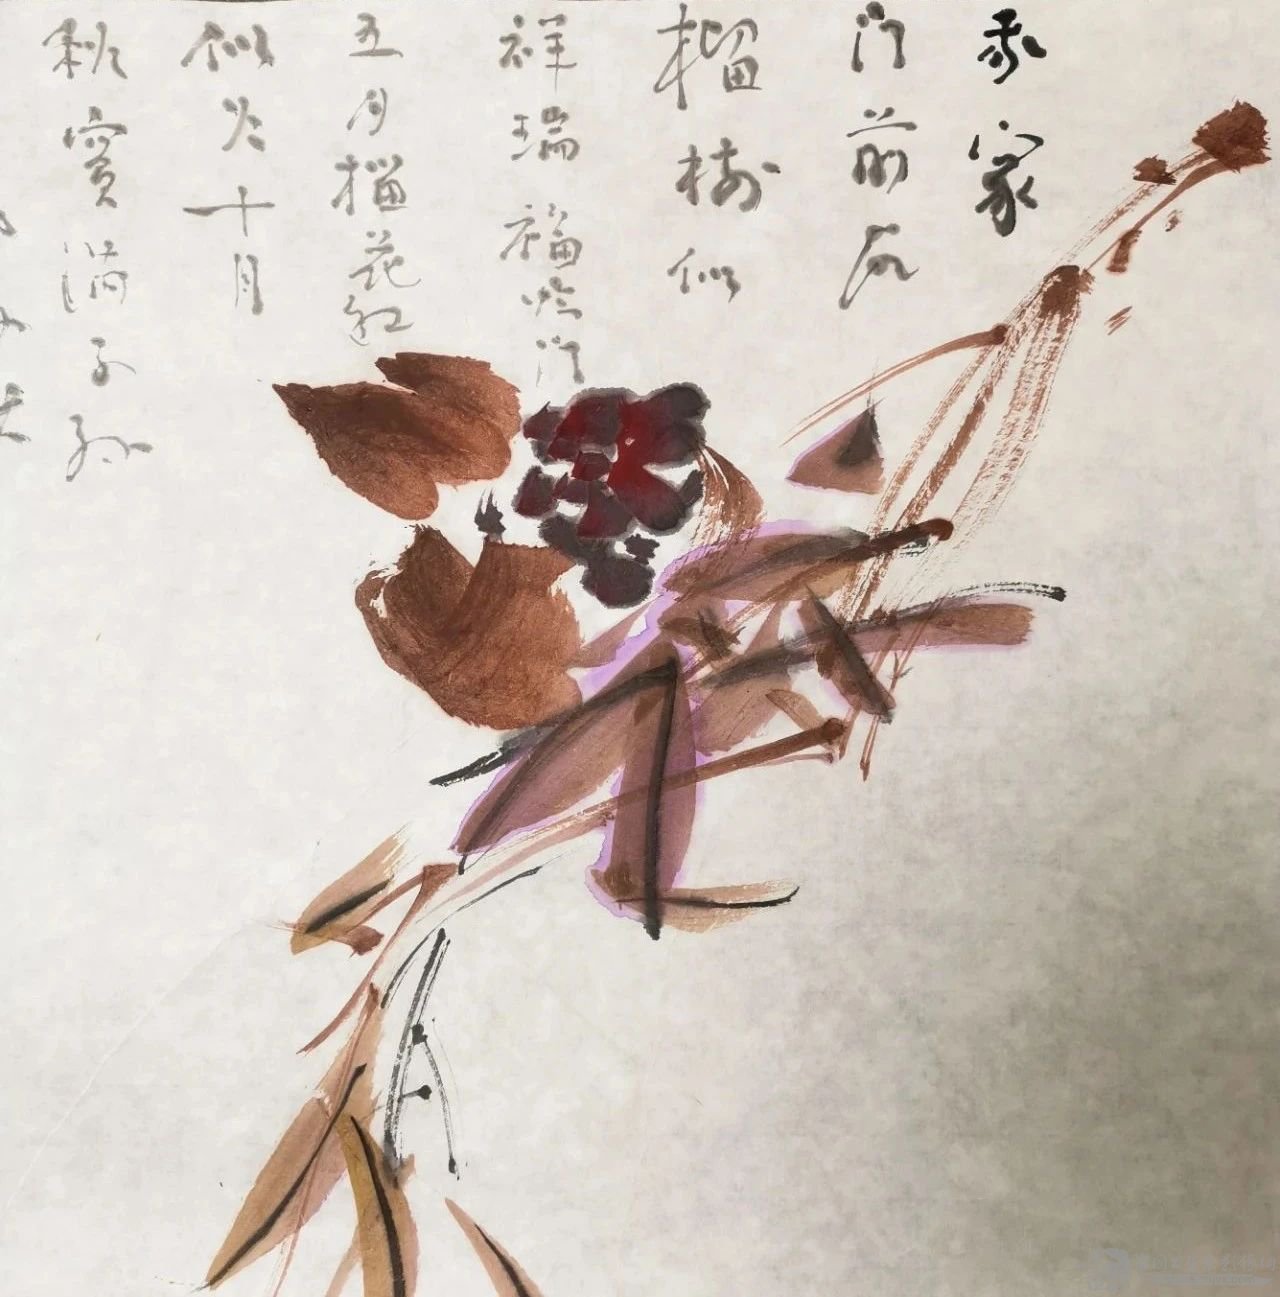 我家
门前石
榴树似
祥瑞福临门
五月榴花红
似火十月
秋实满子孙